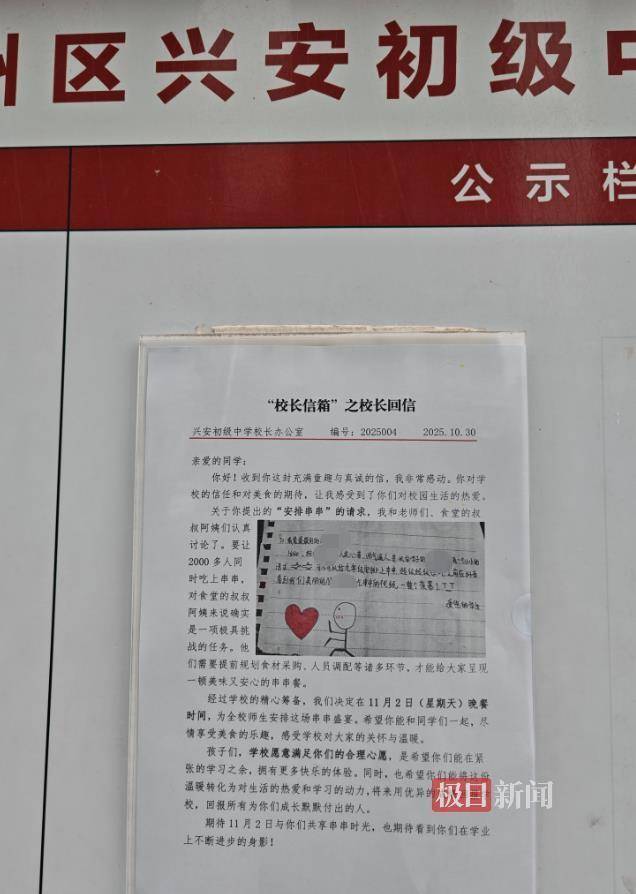 区兴安初级中
公示栏
“校长信箱”之校长回信
兴安初级中学校长办公室 编号：2025004 2025.10.30
亲爱的同学：
你好！收到你这封充满童趣与真诚的信，我非常感动。你对学
校的信任和对美食的期待，让我感受到了你们对校园生活的热爱。
关于你提出的“安排串串”的请求，我和老师们、食堂的叔
叔阿姨们认真
讨论了。要让
2000 多人同
时吃上串串，
对食堂的叔叔
阿姨来说确实
是一项极具挑
战的任务。他
们需要提前规划食材采购、人员调配等诸多环节，才能给大家呈现
一顿美味又安心的串串餐。
经过学校的精心筹备，我们决定在 11 月 2 日（星期天）晚餐
时间，为全校师生安排这场串串盛宴。希望你能和同学们一起，尽
情享受美食的乐趣，感受学校对大家的关怀与温暖。
孩子们，学校愿意满足你们的合理心愿，是希望你们能在紧
张的学习之余，拥有更多快乐的体验。同时，也希望你们能将这份
温暖转化为对生活的热爱和学习的动力，将来用优异的
校，回报所有为你们成长默默付出的人。
期待 11 月 2 日与你们共享串串时光，也期待看到你们在学业
上不断进步的身影！
极目新闻